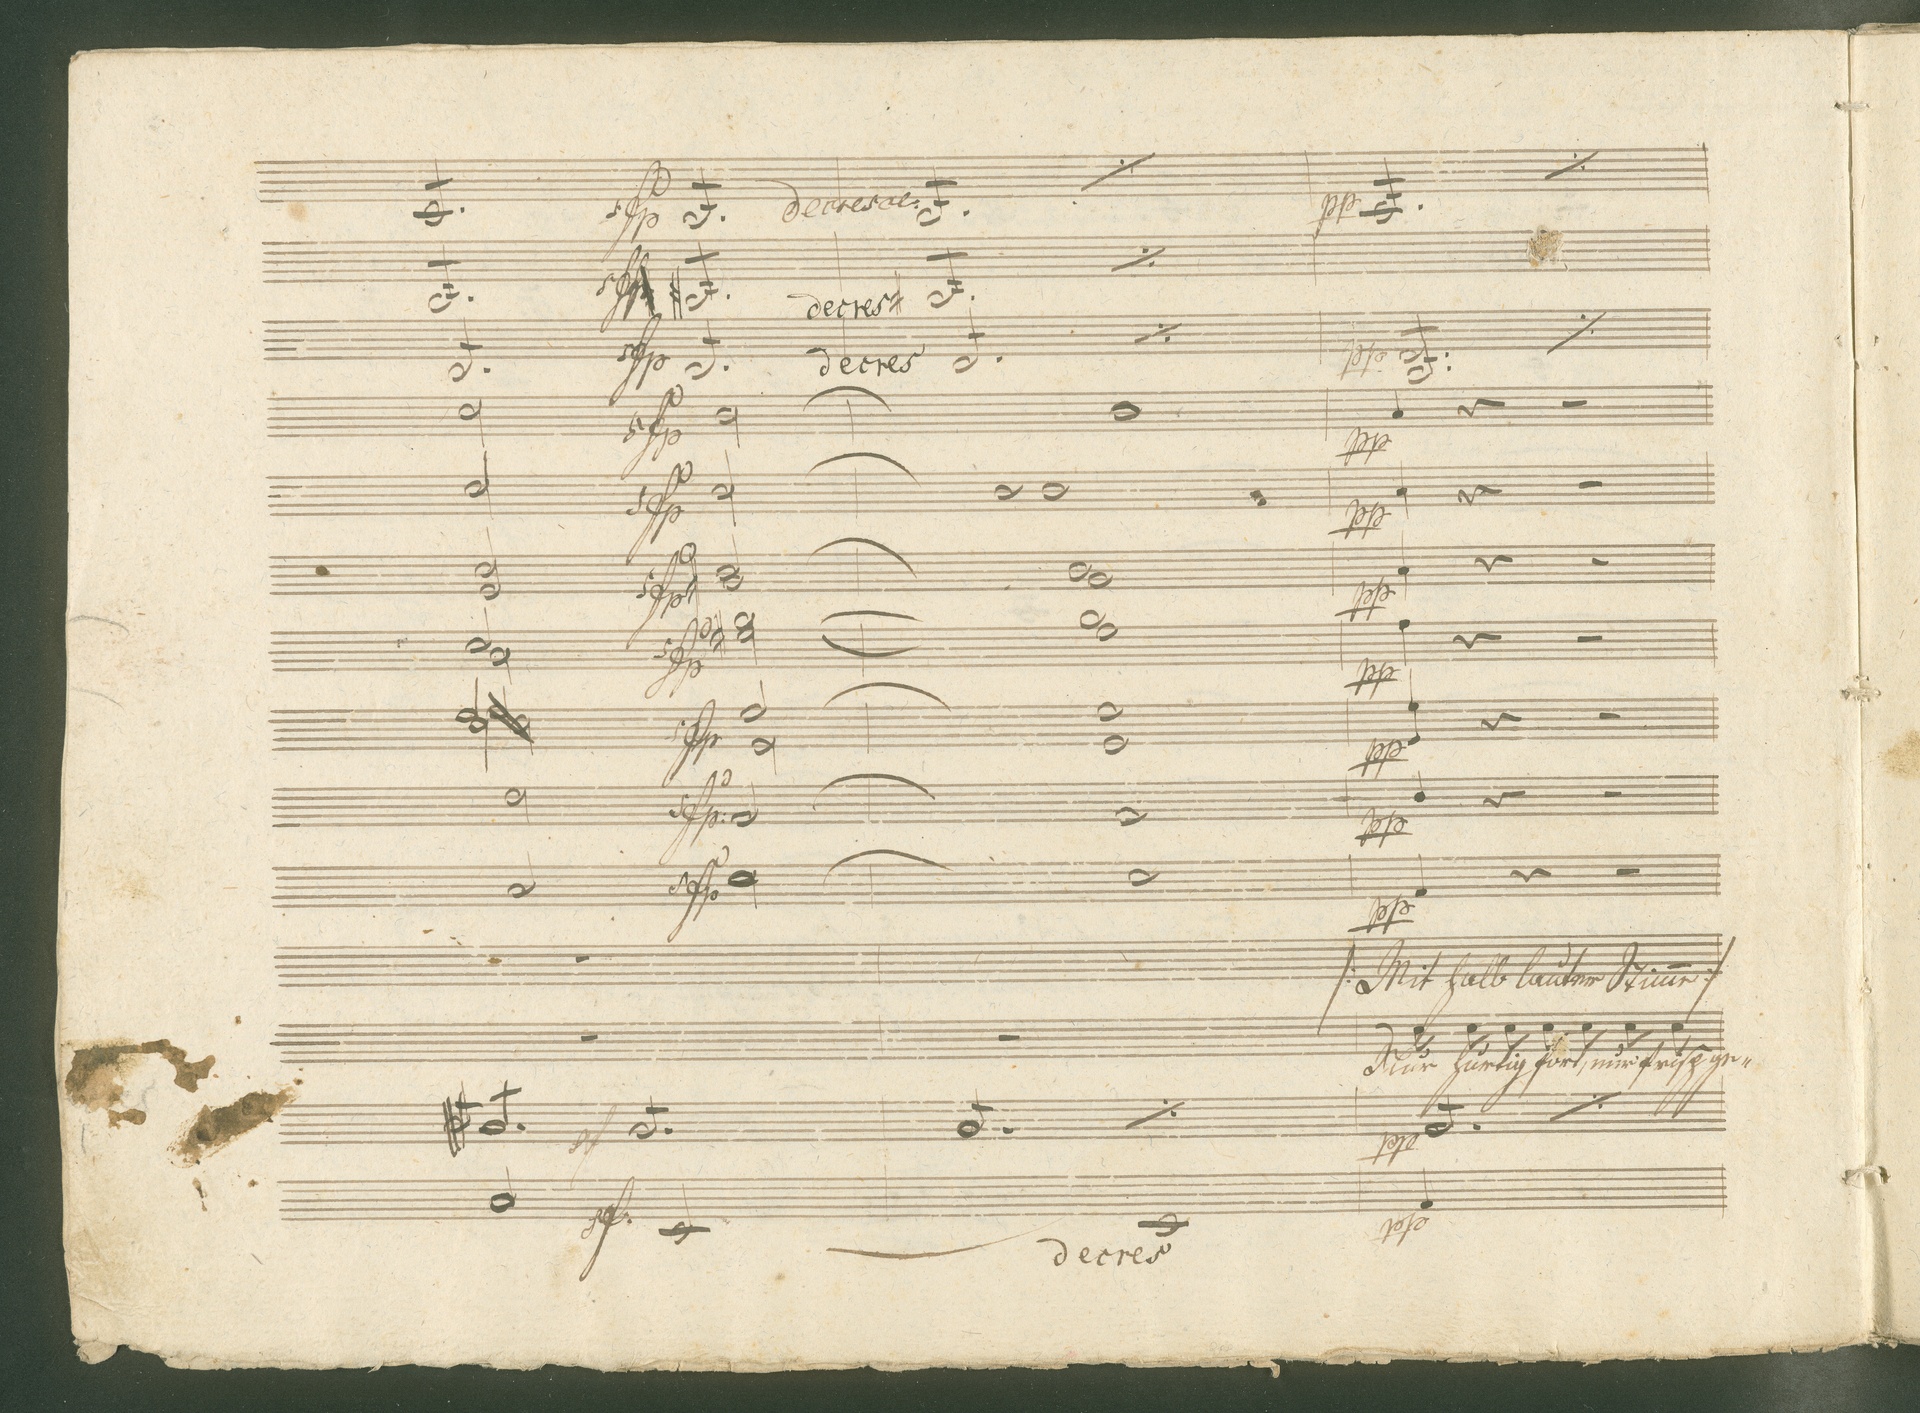 sfp decresce: pp
decres
sfp decres pp
sfp pp
sfp pp
sfp pp
sfp pp
sfp pp
sfp: pp
sfp pp
/: Mit halb lauter Stimme :/
Nur hurtig fort, nur frisch ge-
sf pp
sf: pp
decres